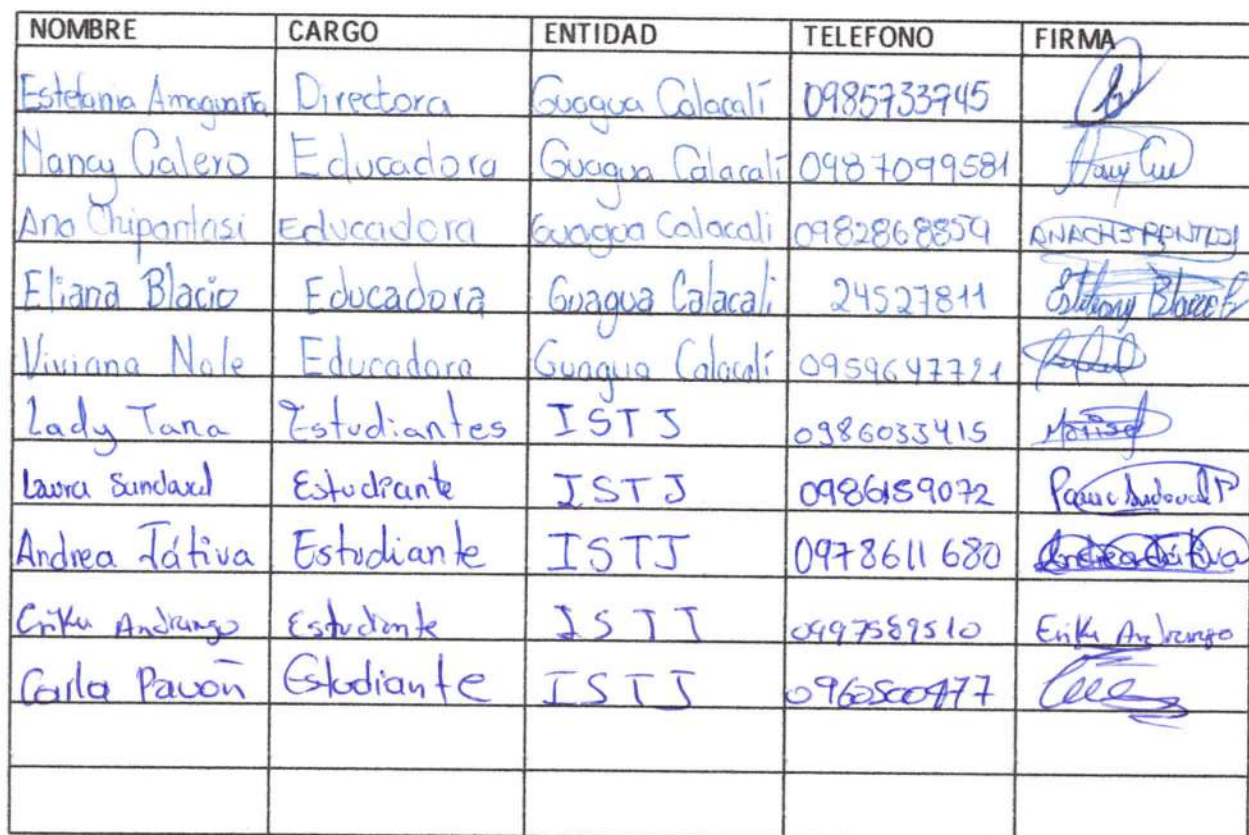 NOMBRE CARGO ENTIDAD TELEFONO FIRMA
Estefania Amaguaña Directora Guagua Calacalí 0985733745
Nancy Calero Educadora Guagua Calacalí 0987099581
Ana Chipantasi Educadora Guagua Calacali 0982868859 ANACHIPANTASI
Eliana Blacio Educadora Guagua Calacali 24527811
Viviana Nole Educadora Guagua Calacalí 0959647721
Lady Tana Estudiantes ISTJ 0986033415
Laura Sandoval Estudiante ISTJ 0986159072
Andrea Játiva Estudiante ISTJ 0978611680 Andrea Játiva
Erika Andrango Estudiante ISTJ 0997589510 Erika Andrango
Carla Pavón Estudiante ISTJ